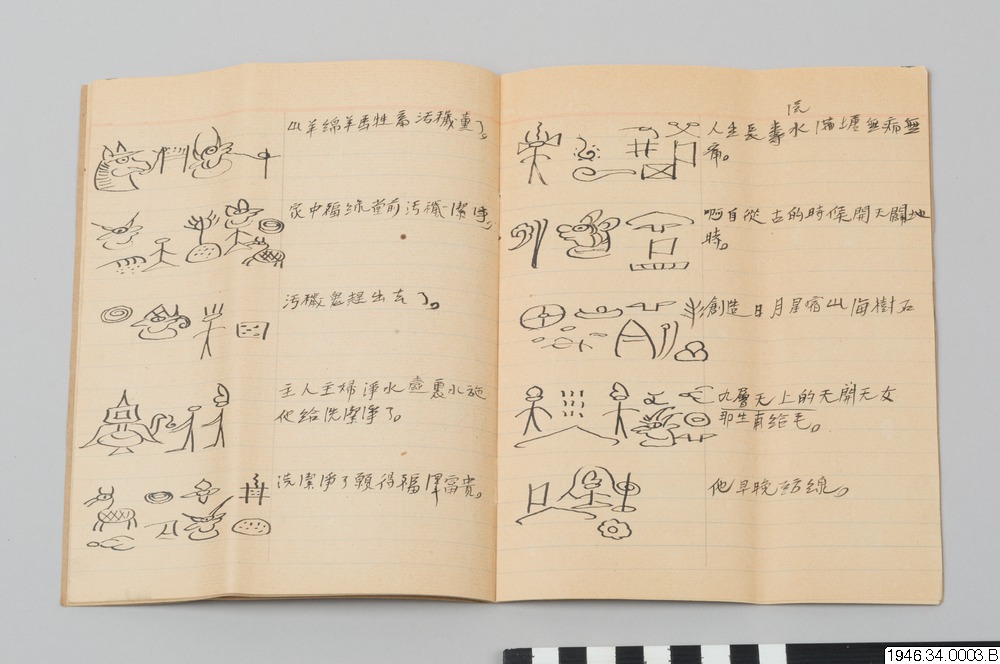 山羊绵羊馬牲畜污穢薰了。
家中福綠堂前污穢潔净。
污穢忽趕出去了。
主人主婦淨水壺裏水施
他給洗潔淨了。
洗潔淨了願得福澤富貴。
洗
人生長壽水滿塘無病無
痛。
啊自從古的時候開天闢地
時。
創造日月星宿山海樹石
九層天上的天開天女
那生直給毛。
他早晚綫。
1946.34.0003.B